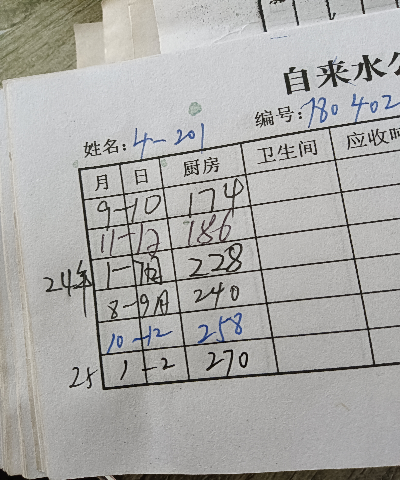 自来水公
姓名: 4-201 编号: 780402
月 日 厨房 卫生间 应收
9-10 174
11-12 186
24年 1-7月 228
8-9月 240
10-12 258
25 1-2 270